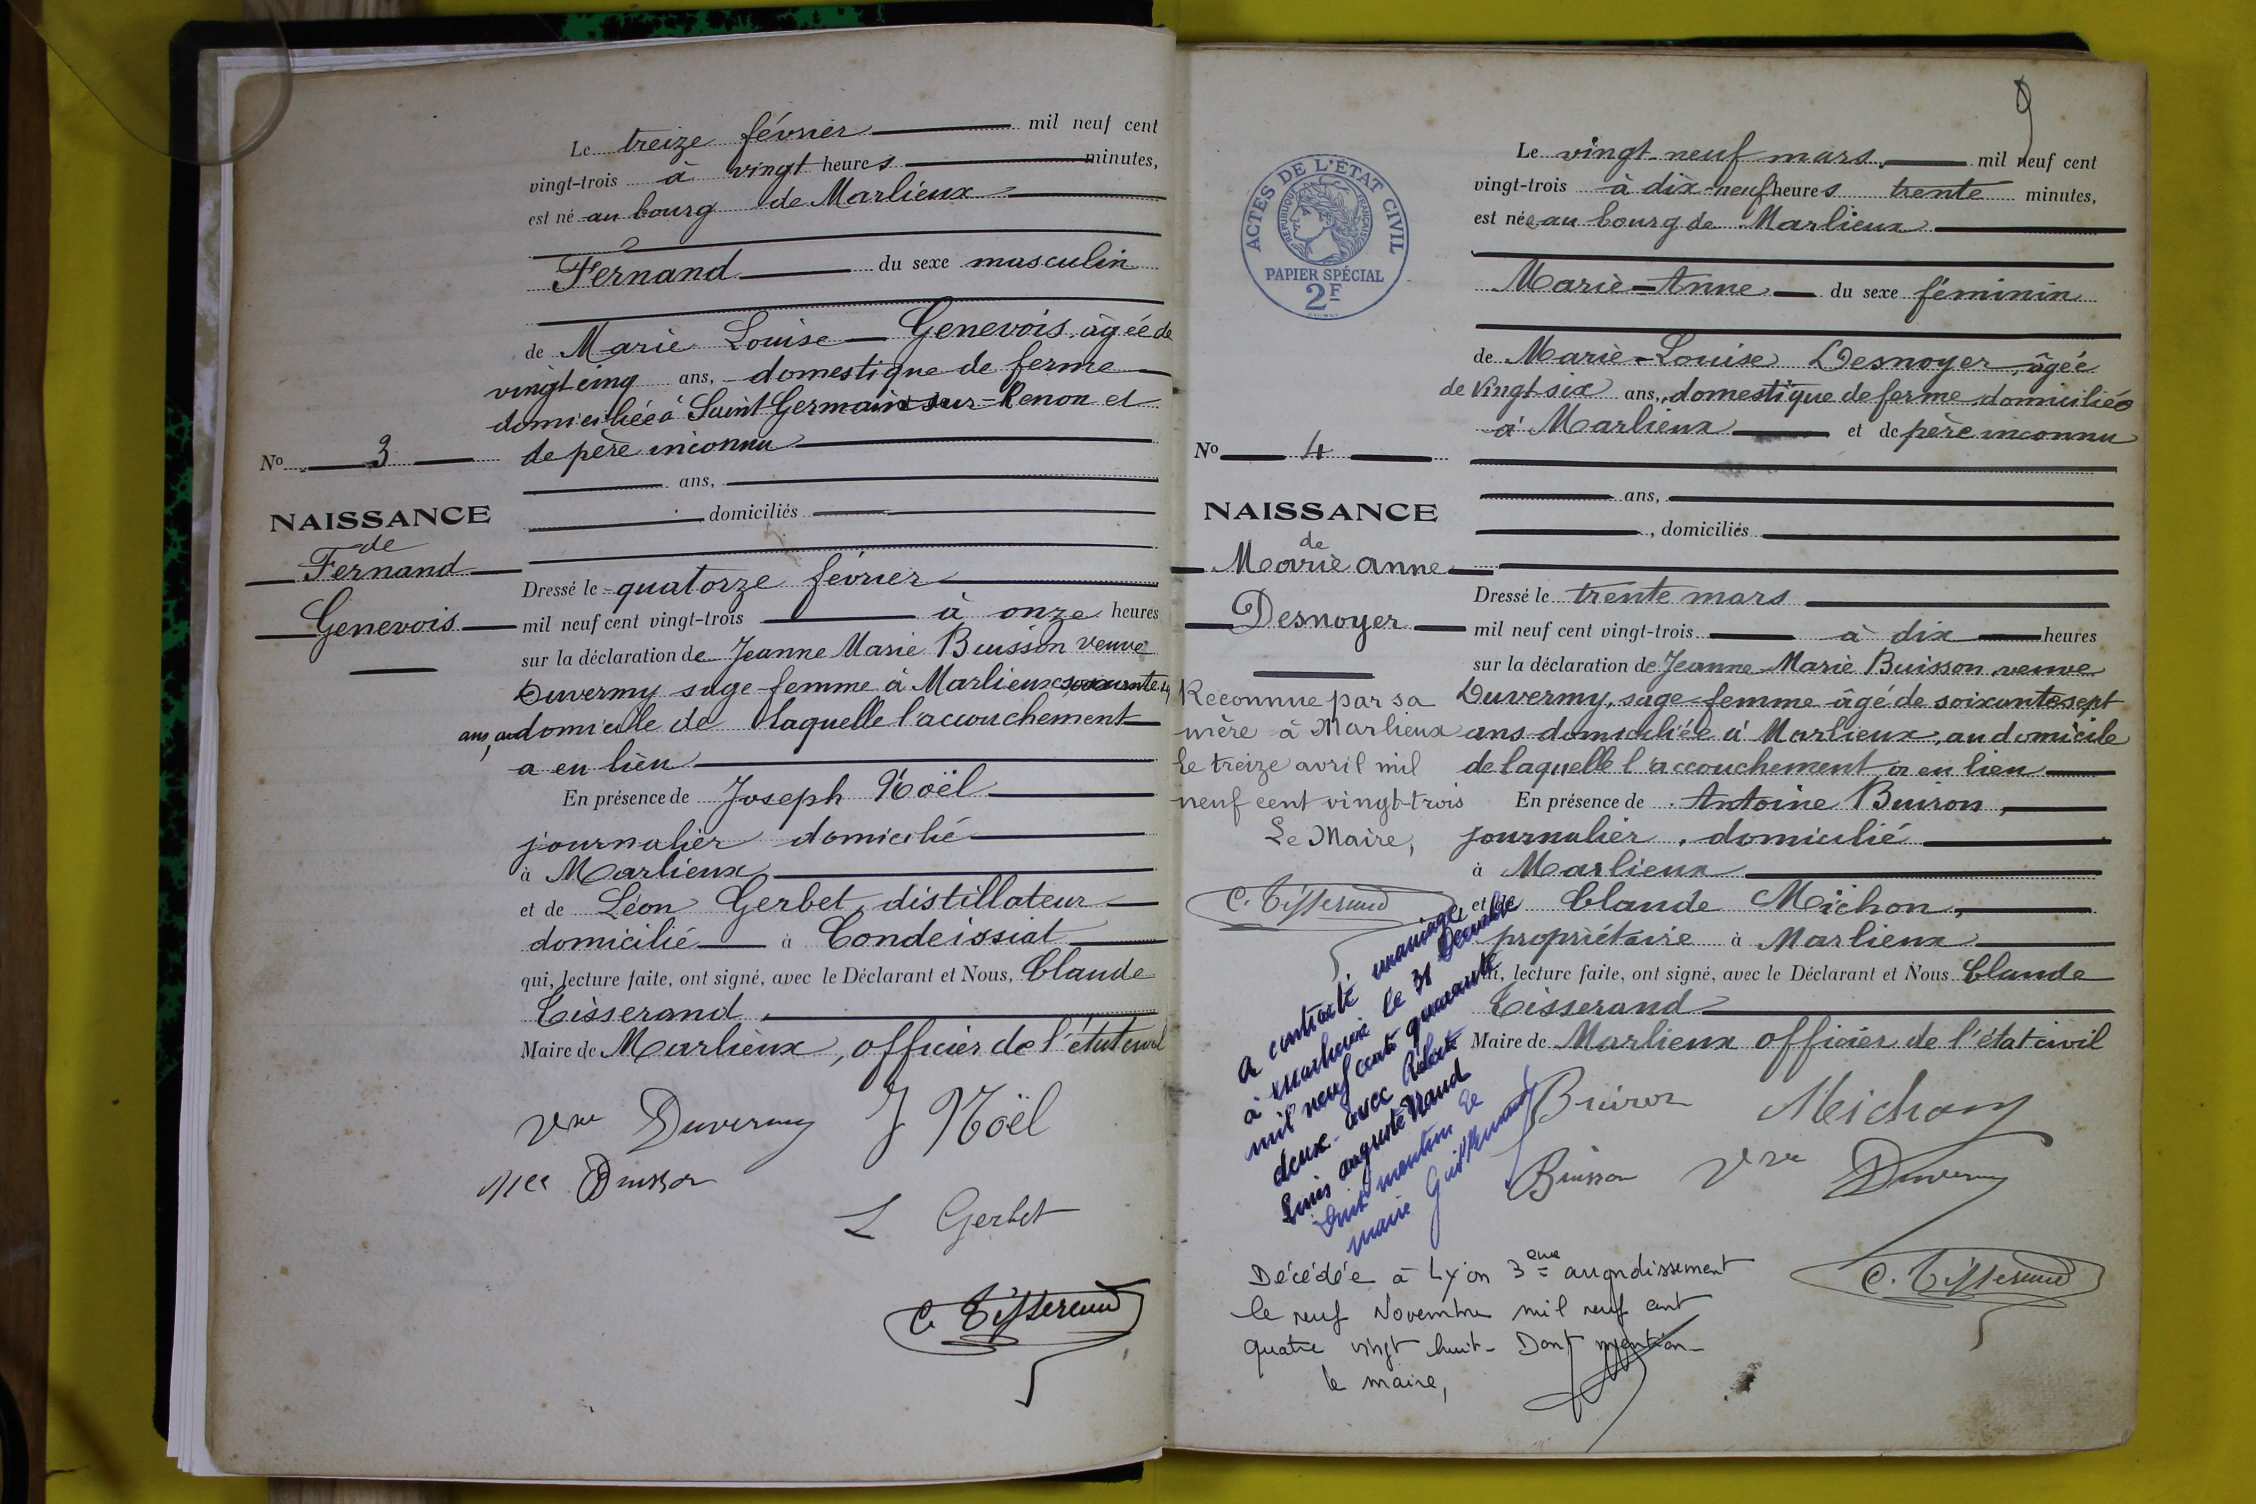 Le treize février mil neuf cent
vingt-trois à vingt heures minutes,
est né au bourg de Marlieux
Fernand du sexe masculin
de Marie Louise Genevois âgée de
vingt cinq ans, domestique de ferme
domiciliée à Saint Germain sur-Renon et
de père inconnu
ans,
domiciliés
Nº 3
NAISSANCE
de
Fernand
Genevois
Dressé le quatorze février
mil neuf cent vingt-trois à onze heures
sur la déclaration de Jeanne Marie Buisson veuve
Duvermy sage-femme à Marlieux
ans, au domicile de laquelle l'accouchement
a eu lieu
En présence de Joseph Noël
journalier domicilié
à Marlieux
et de Léon Gerbet, distillateur
domicilié à Condeissiat
qui, lecture faite, ont signé, avec le Déclarant et Nous, Claude
Tisserand,
Maire de Marlieux, officier de l'état civil
Vve Duvermy J Noël
née Buisson
L Gerbet
C. Tisserand
9
ACTES DE L'ÉTAT CIVIL
RÉPUBLIQUE FRANÇAISE
PAPIER SPÉCIAL
2F
Le vingt neuf mars mil neuf cent
vingt-trois à dix-neuf heures trente minutes,
est née au bourg de Marlieux
Marie-Anne du sexe féminin
de Marie-Louise Desnoyer âgée
de vingt six ans, domestique de ferme domiciliée
à Marlieux et de père inconnu
ans,
, domiciliés
Nº 4
NAISSANCE
de
Marie Anne
Desnoyer
Dressé le trente mars
mil neuf cent vingt-trois à dix heures
sur la déclaration de Jeanne-Marie Buisson veuve
Duvermy, sage-femme âgé de soixante sept
ans domiciliée à Marlieux, au domicile
de laquelle l'accouchement a eu lieu
En présence de Antoine Buiron,
journalier, domicilié
à Marlieux
et de Claude Michon,
propriétaire à Marlieux
qui, lecture faite, ont signé, avec le Déclarant et Nous Claude
Tisserand
Maire de Marlieux officier de l'état civil
Buiron Michon
Buisson Vve Duvermy
C. Tisserand
Reconnue par sa
mère à Marlieux
le treize avril mil
neuf cent vingt-trois
Le Maire,
C. Tisserand
A contracté mariage
à Marlieux le 31 Décembre
mil neuf cent quarante
deux avec
Louis auguste
Dont mention Le
maire
Décédée à Lyon 3ème arrondissement
le neuf Novembre mil neuf cent
quatre vingt huit - Dont mention -
le maire,